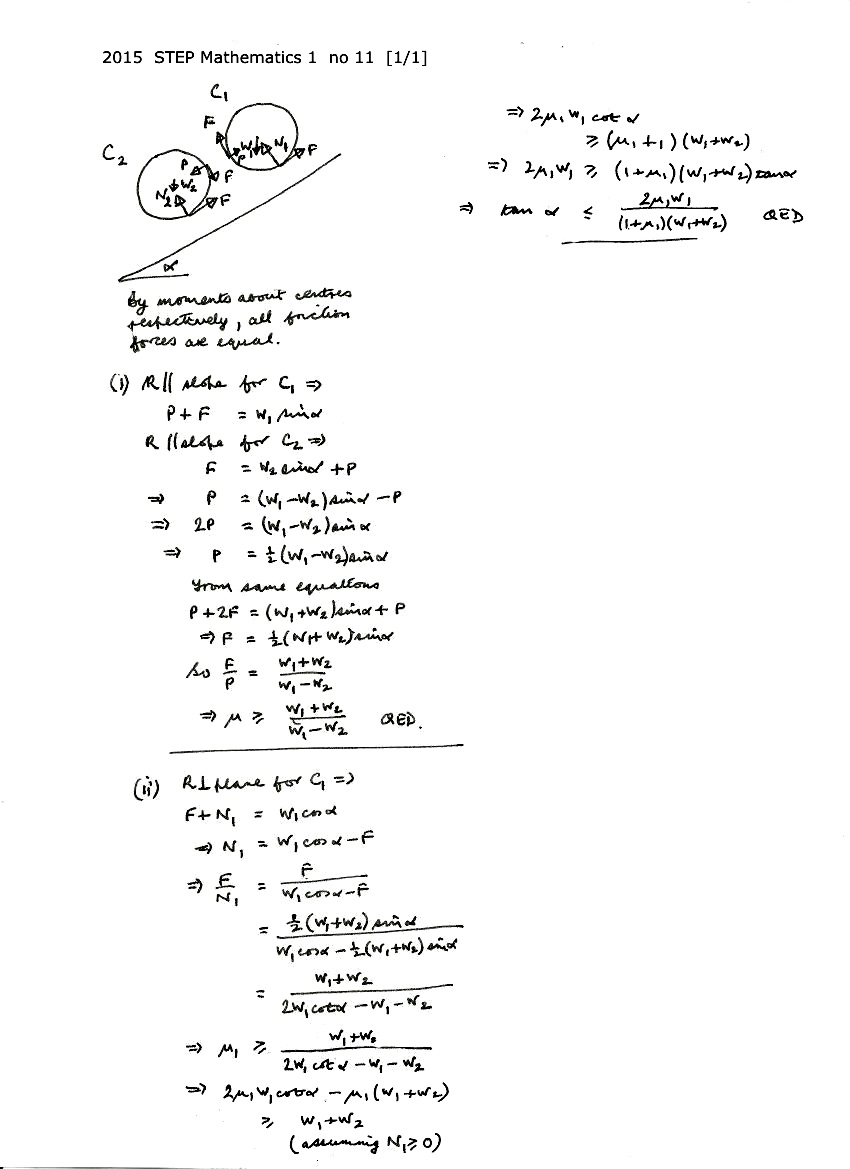 2015 STEP Mathematics 1 no 11 [1/1]
C₁
F
W₁
N₁
F
P
C₂
P
F
W₂
N₂
F
α
By moments about centres
respectively, all friction
forces are equal.
(i) R ∥ slope for C₁ ⇒
P + F = W₁ sin α
R ∥ slope for C₂ ⇒
F = W₂ sin α + P
⇒ P = (W₁ − W₂) sin α − P
⇒ 2P = (W₁ − W₂) sin α
⇒ P = ½(W₁ − W₂) sin α
From same equations
P + 2F = (W₁ + W₂) sin α + P
⇒ F = ½(W₁ + W₂) sin α
So F/P = (W₁ + W₂)/(W₁ − W₂)
⇒ μ ≥ (W₁ + W₂)/(W₁ − W₂) QED.
(ii) R ⊥ plane for C₁ ⇒
F + N₁ = W₁ cos α
⇒ N₁ = W₁ cos α − F
⇒ F/N₁ = F/(W₁ cos α − F)
= ½(W₁ + W₂) sin α/(W₁ cos α − ½(W₁ + W₂) sin α)
= (W₁ + W₂)/(2W₁ cot α − W₁ − W₂)
⇒ μ₁ ≥ (W₁ + W₂)/(2W₁ cot α − W₁ − W₂)
⇒ 2μ₁W₁ cot α − μ₁(W₁ + W₂)
≥ W₁ + W₂
(assuming N₁ ≥ 0)
⇒ 2μ₁W₁ cot α
≥ (μ₁ + 1)(W₁ + W₂)
⇒ 2μ₁W₁ ≥ (1 + μ₁)(W₁ + W₂) tan α
⇒ tan α ≤ 2μ₁W₁/((1 + μ₁)(W₁ + W₂)) QED